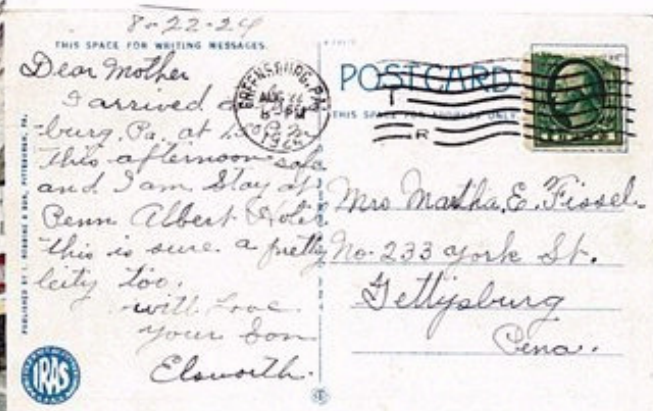 8-22-24
THIS SPACE FOR WRITING MESSAGES.
Dear Mother
I arrived
burg. Pa. at
this afternoon safe
and I am Stay at
Penn Albert Hotel
this is sure a pretty
City too.
with Love
Your Son
Elsworth.
PUBLISHED BY I. ROBBINS & SON, PITTSBURGH, PA.
IRAS
GREENSBURG, PA.
AUG 22
8 PM
1924
POSTCARD
THIS SPACE FOR ADDRESS ONLY
Mrs Martha. E. Fissel.
No. 233 York St.
Gettysburg
Pena.